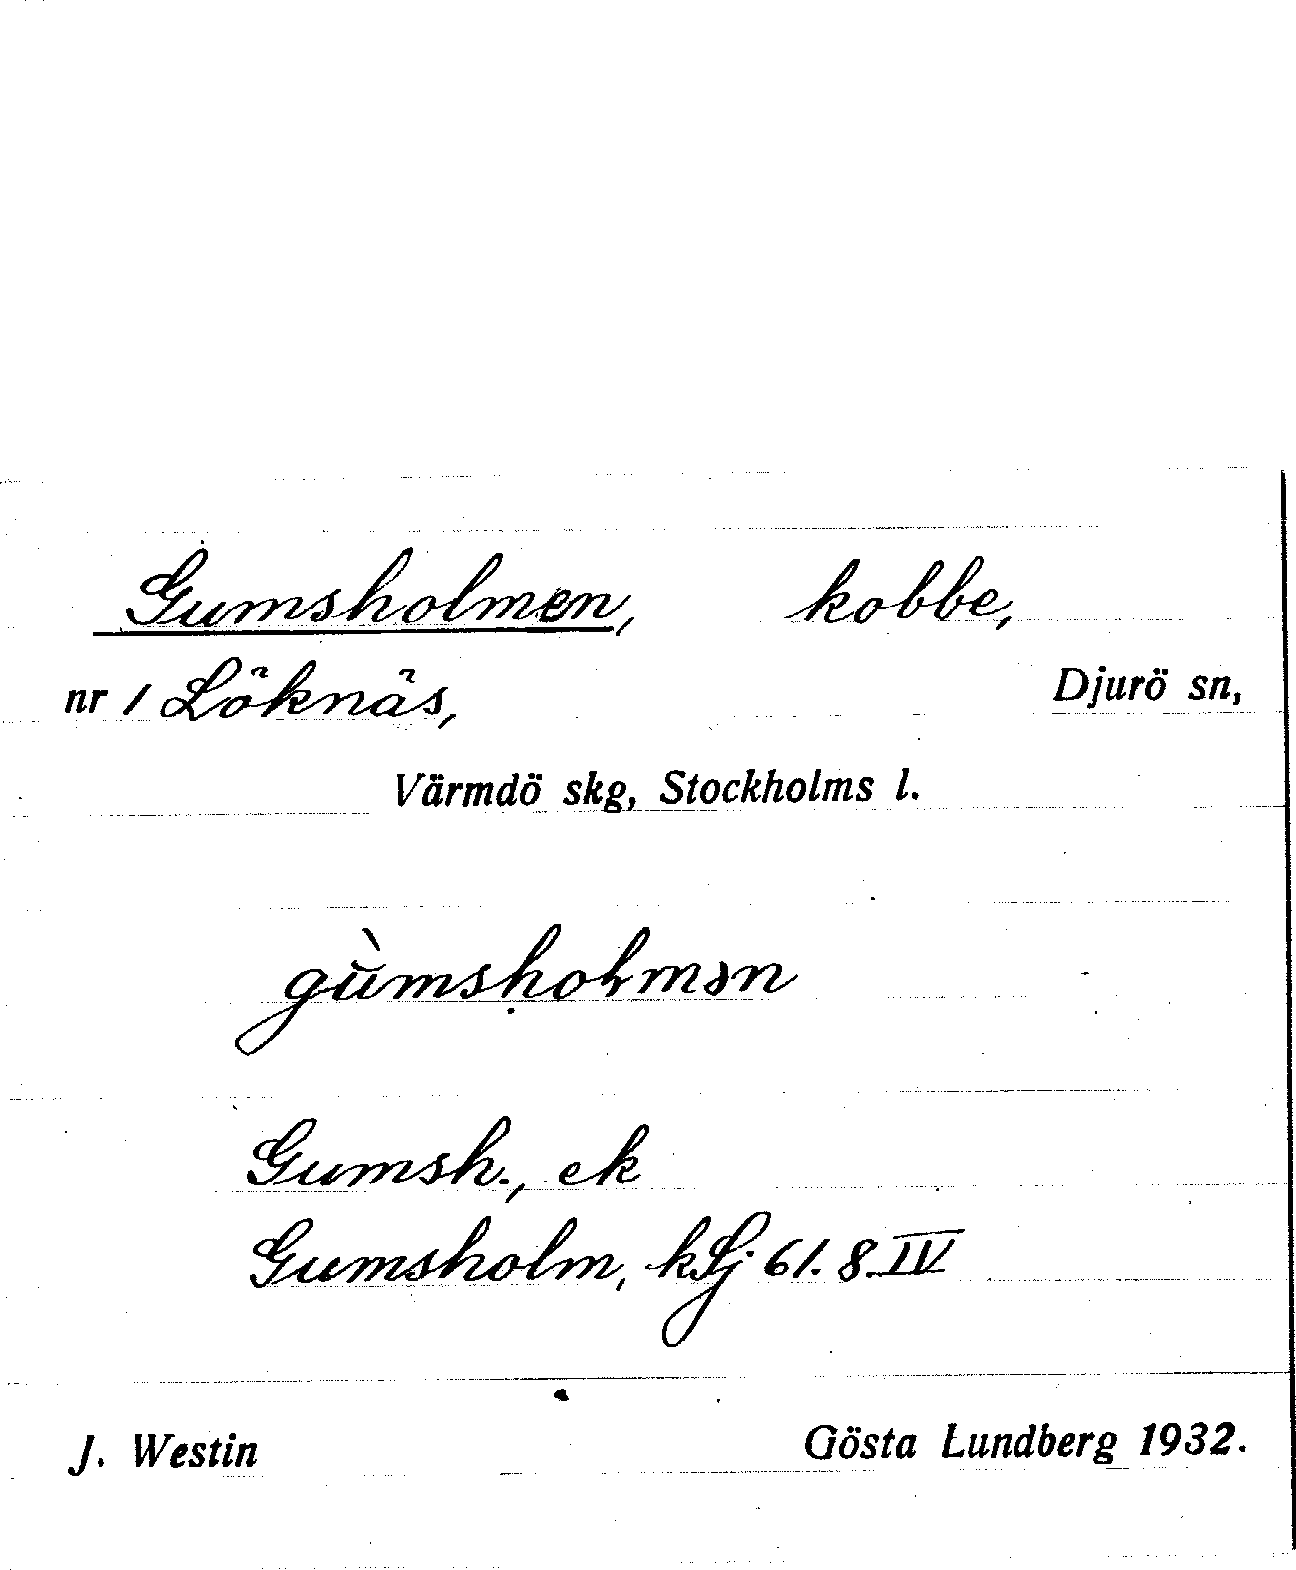 Gumsholmen, kobbe,
nr 1 Löknäs, Djurö sn,
Värmdö skg, Stockholms l.
gùmshoɫmən
Gumsh., ek
Gumsholm, kSj 61. 8. IV
J. Westin Gösta Lundberg 1932.